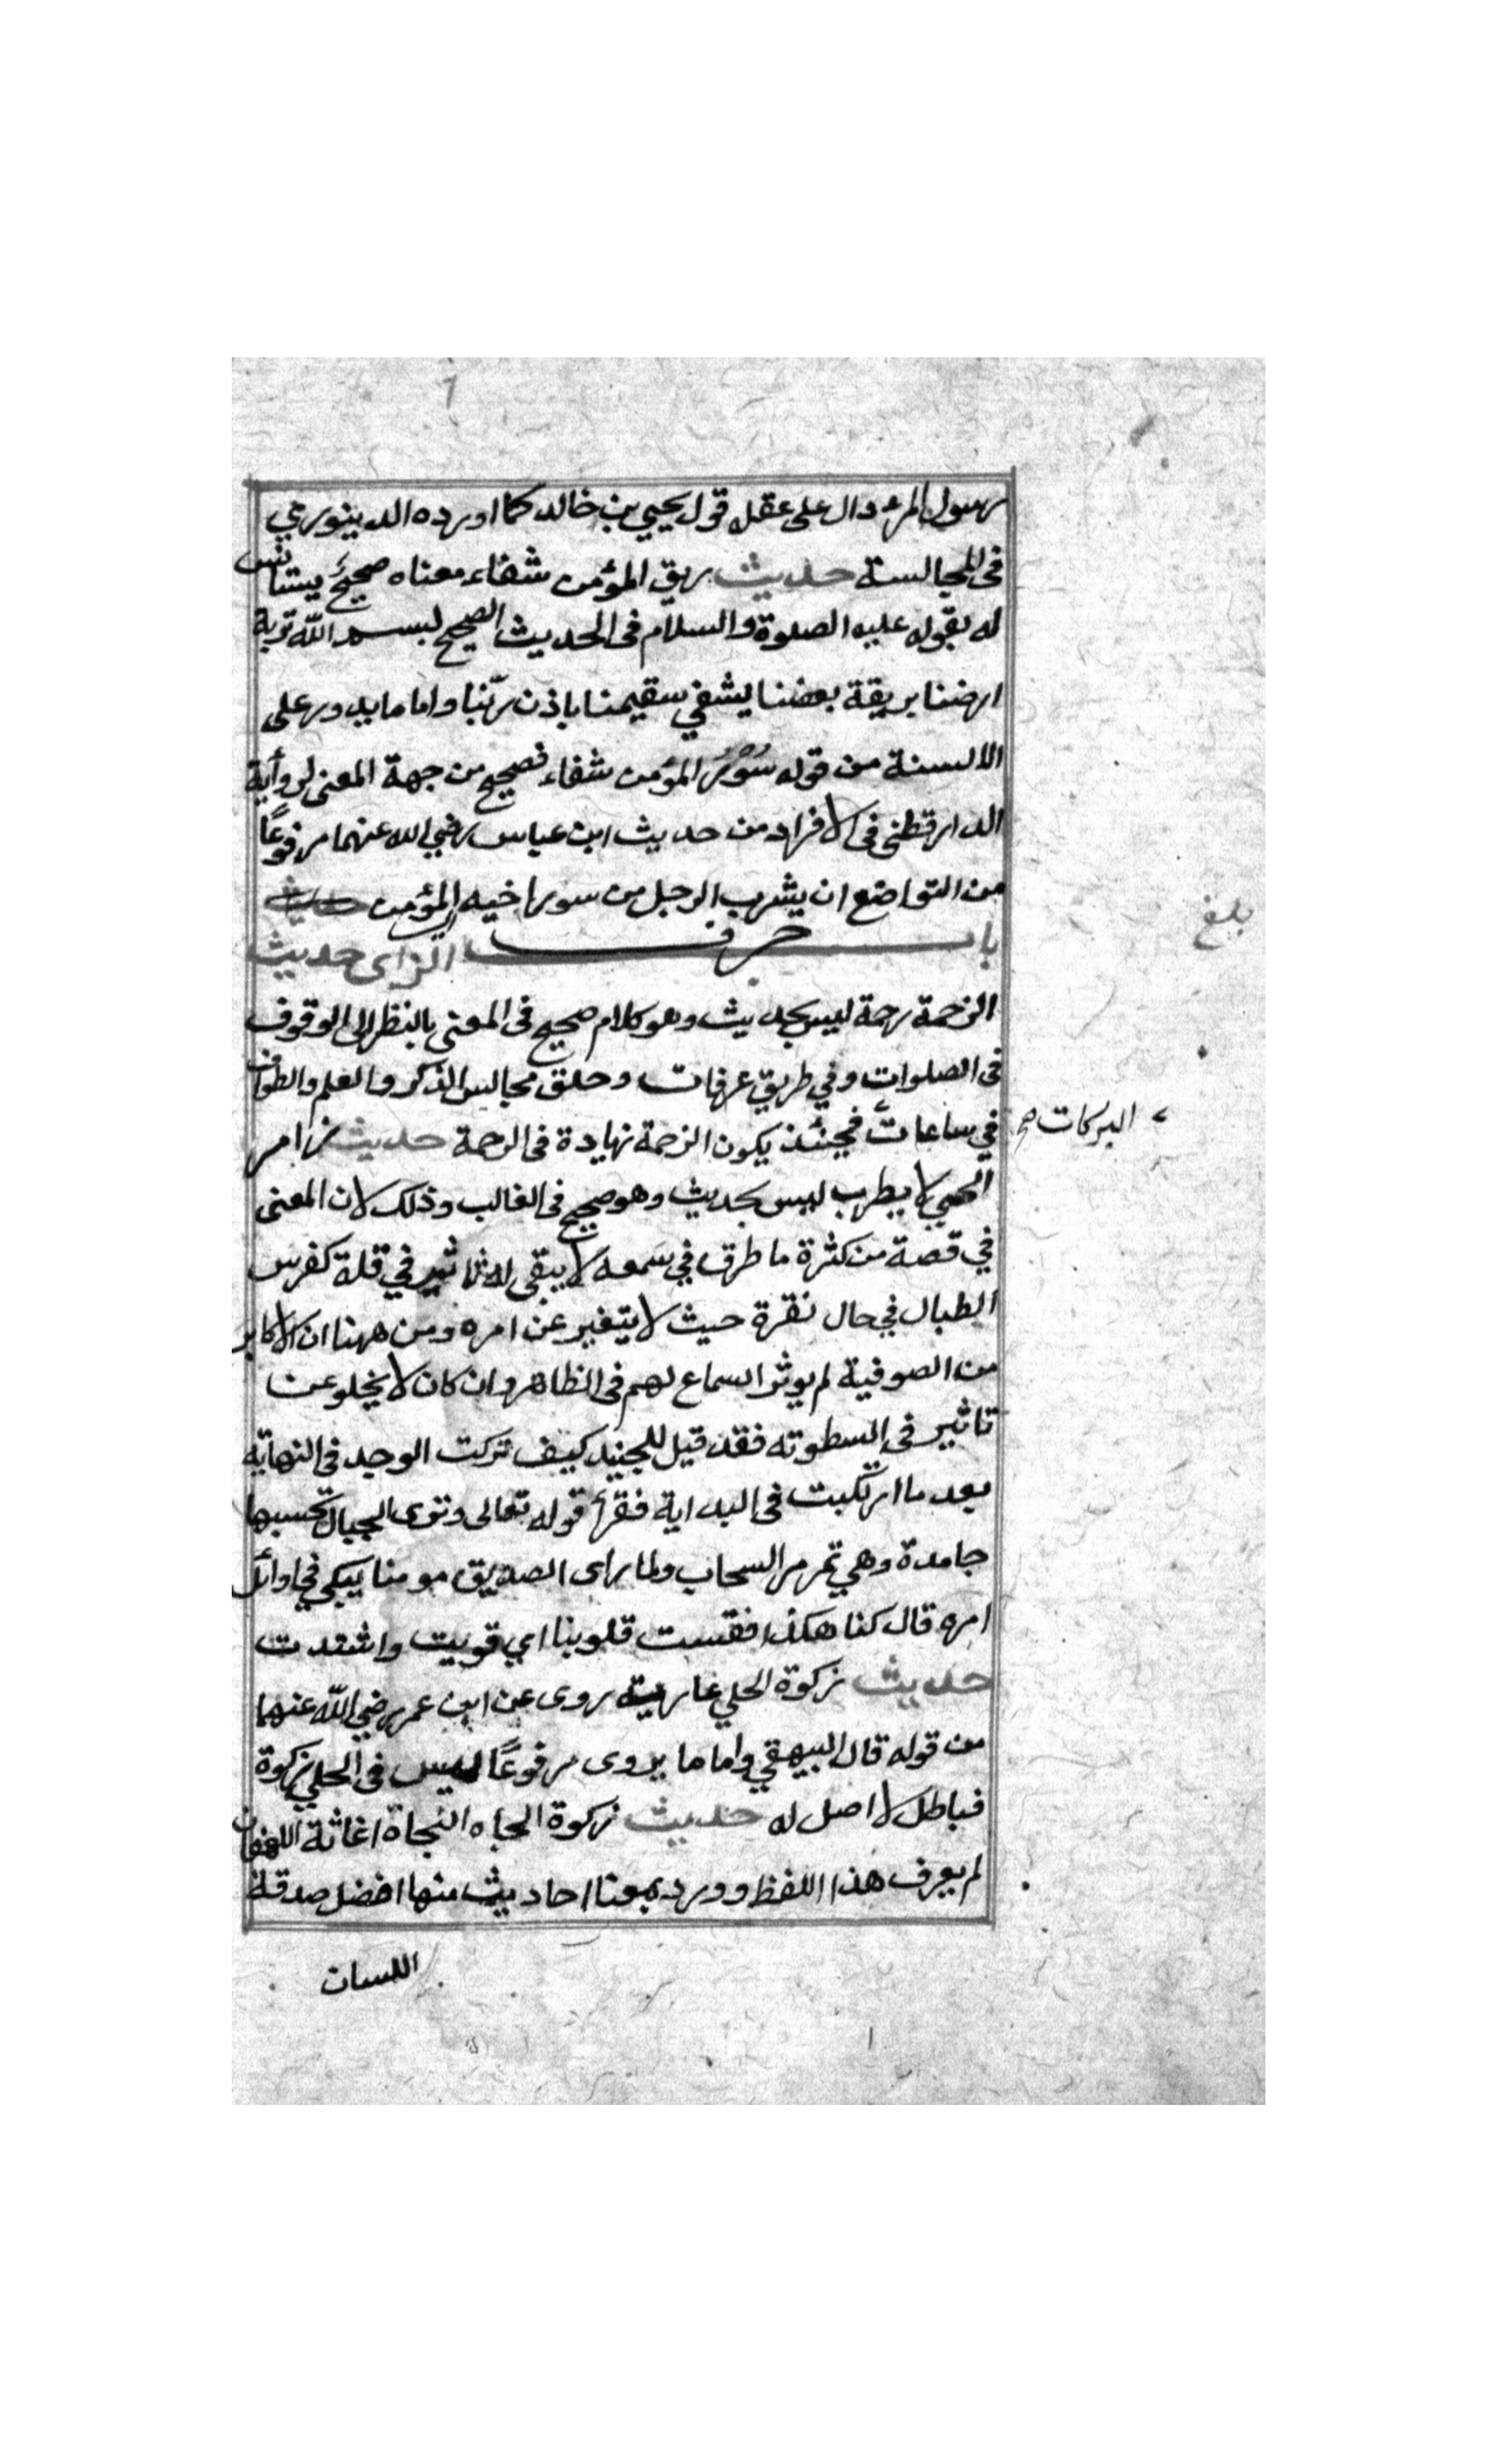 رسول المرء دال على عقله قول يحيى بن خالد كما اورده الدينوري
في المجالسة حديث ريق المؤمن شفاء معناه صحيح يستانس
له بقوله عليه الصلوة والسلام في الحديث الصحيح بسم الله تربة
ارضنا بريقة بعضنا يشفي سقيمنا باذن ربّنا واما ما يدور على
الالسنة من قوله سُورُ المؤمن شفاء فصحيح من جهة المعنى لرواية
الدارقطني في الافراد من حديث ابن عباس رضي الله عنهما مرفوعًا
من التواضع ان يشرب الرجل من سور اخيه المؤمن
باب حرف الزاى حديث
الزحمة رحمة ليس بحديث وهو كلام صحيح في المعنى بالنظر الى الوقوف
في الصلوات وفي طريق عرفات وحلق مجالس الذكر والعلم والطواف
في ساعات فحينئذ يكون الزحمة زيادة في الرحمة حديث زامر
البركات صح
الحي لا يطرب ليس بحديث وهو صحيح في الغالب وذلك لان المعنى
في قصة من كثرة ما طرق في سمعه لا يبقى له تاثير في قلة كفرس
الطبال في حال نقرة حيث لا يتغير عن امره ومن ههنا ان الاكابر
من الصوفية لم يوثر السماع لهم في الظاهر وان كان لا يخلو عن
تاثير في السطوته فقد قيل للجنيد كيف تركت الوجد في النهاية
بعد ما ارتكبت في البداية فقرأ قوله تعالى وترى الجبال تحسبها
جامدة وهي تمر مر السحاب ولما راى الصديق مومنا يبكي في اوائل
امره قال كنا هكذا فقست قلوبنا اي قويت واشتدت
حديث زكوة الحلي عارية روى عن ابن عمر رضي الله عنهما
من قوله قال البيهقي واما ما يروى مرفوعًا ليس في الحلي زكوة
فباطل لا اصل له حديث زكوة الجاه النجاة اغاثة اللهفان
لم يعرف هذا اللفظ وورد بمعنا احاديث منها افضل صدقة
اللسان
بلغ